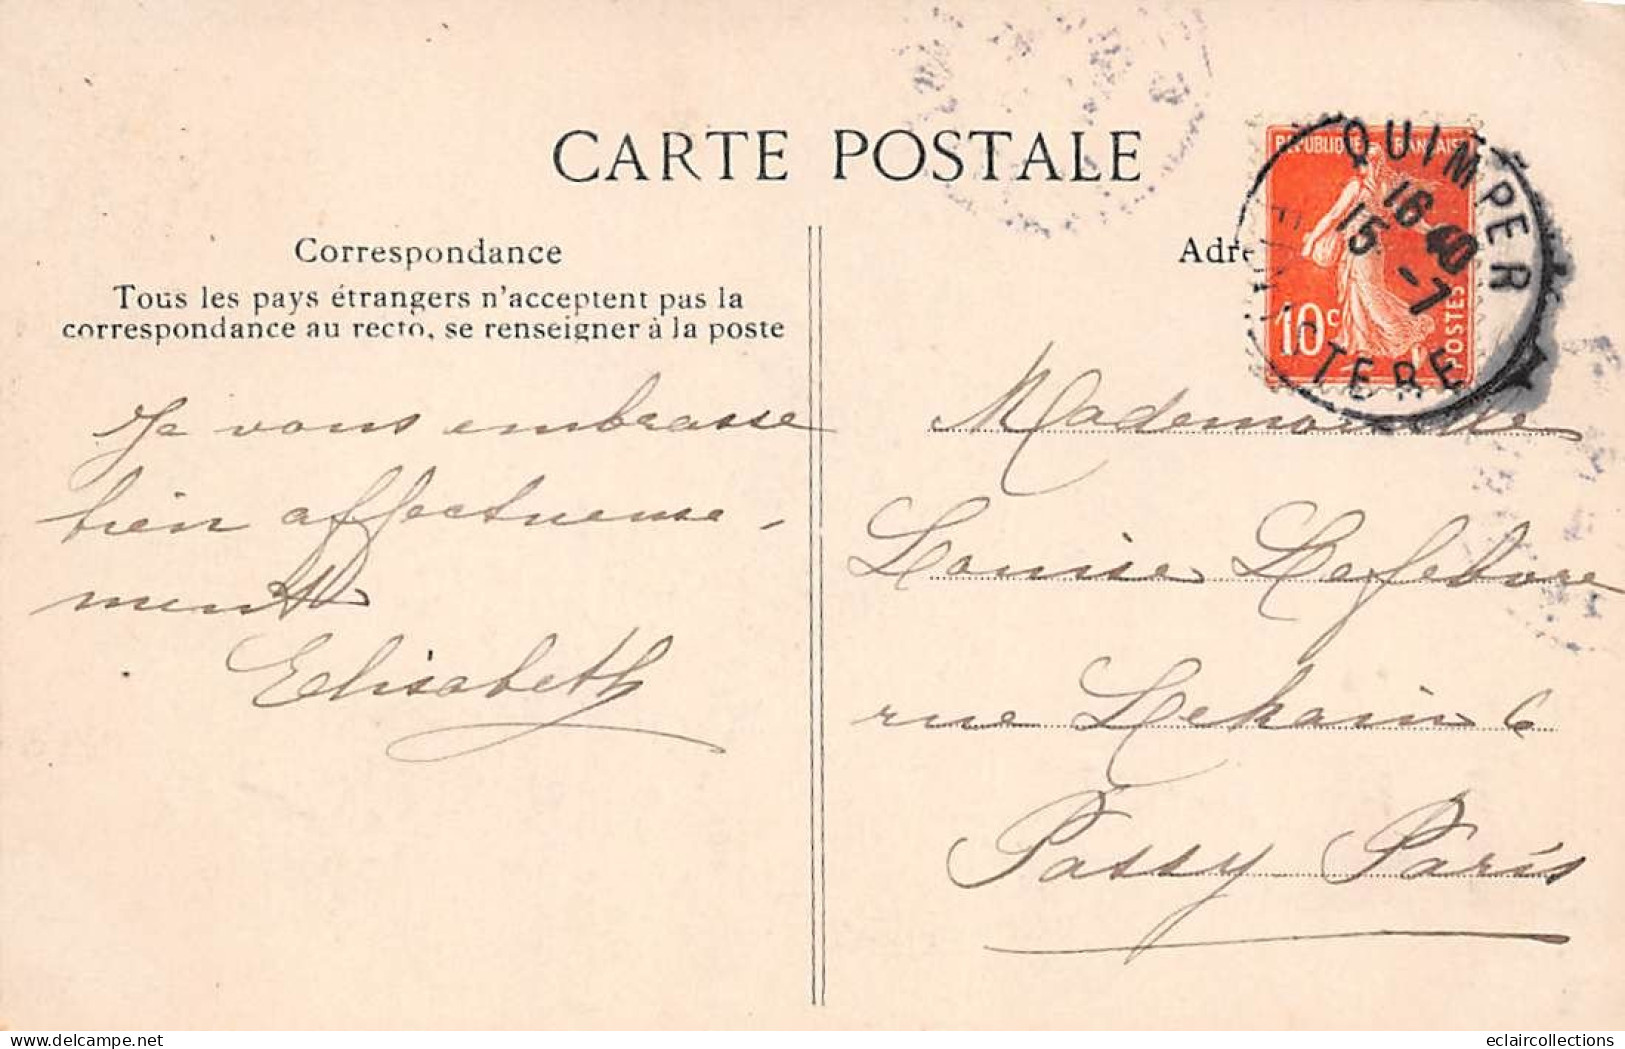 CARTE POSTALE
Correspondance
Tous les pays étrangers n'acceptent pas la
correspondance au recto, se renseigner à la poste
Je vous embrasse
bien affectueuse-
ment
Elisabeth
Adre
REPUBLIQUE FRANÇAISE
10c
POSTES
QUIMPER
16 40
15 -7
FINISTERE
Mademoiselle
Louise Lefebvre
rue Lekain 6
Passy Paris
delcampe.net
eclaircollections